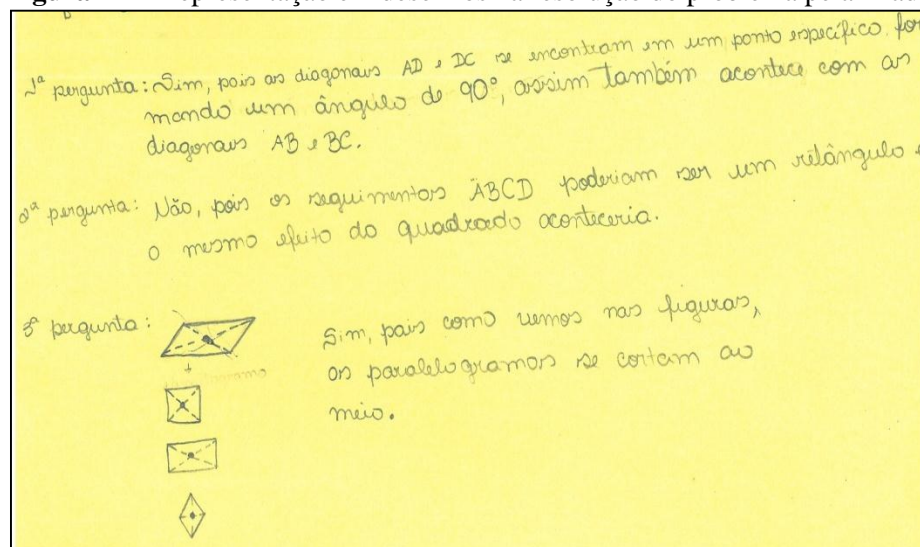 1ª pergunta: Sim, pois as diagonais AD e DC se encontram em um ponto específico for
mando um ângulo de 90°, assim também acontece com as
diagonais AB e BC.
2ª pergunta: Não, pois os seguimentos ABCD poderiam ser um retângulo e
o mesmo efeito do quadrado aconteceria.
3ª pergunta:
Sim, pois como vemos nas figuras,
os paralelogramos se cortam ao
meio.